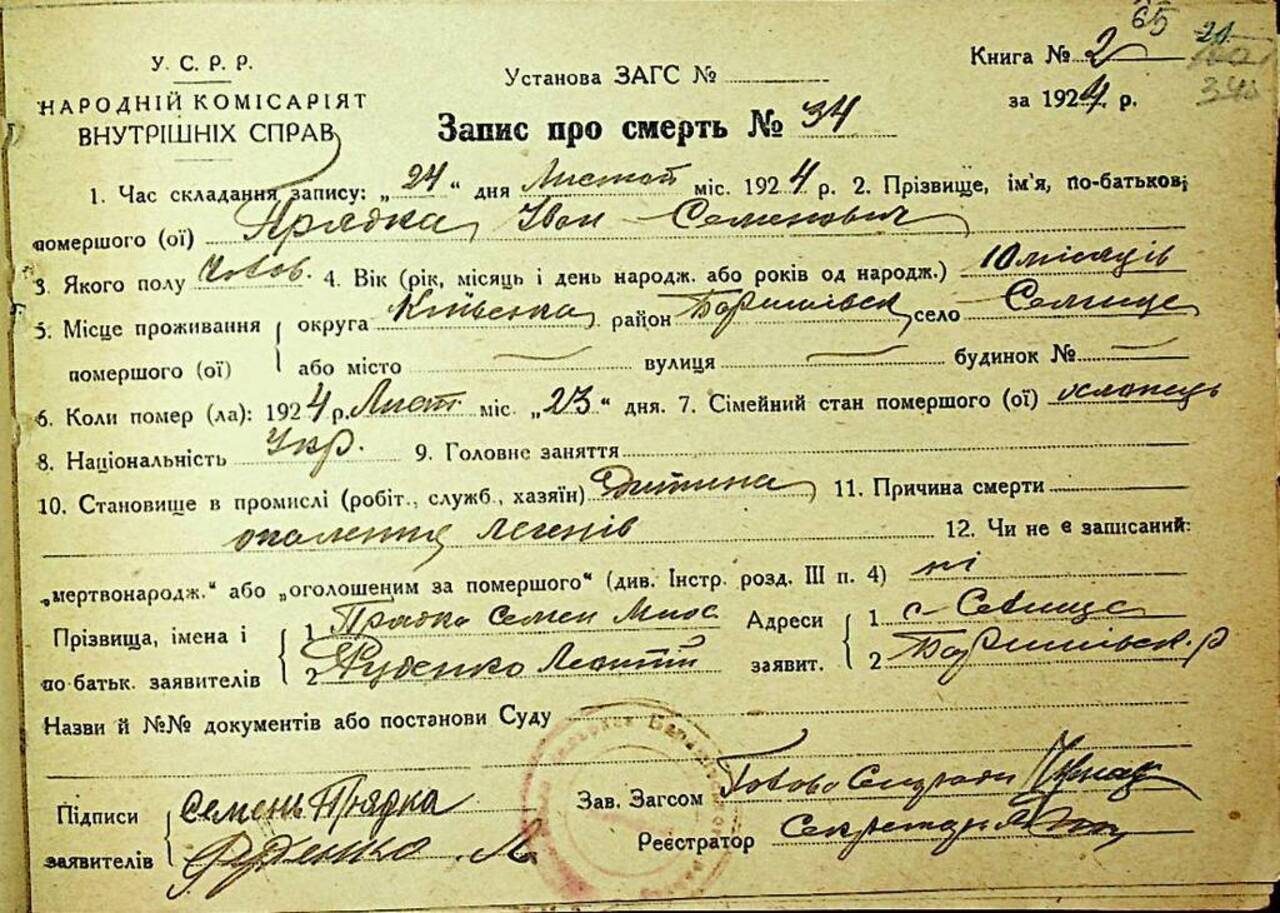 65
21
У. С. Р. Р.
НАРОДНІЙ КОМІСАРІЯТ
ВНУТРІШНІХ СПРАВ
Установа ЗАГС №
Книга № 2
за 1924 р.
340
Запис про смерть № 34
1. Час складання запису: „24“ дня Листоп міс. 1924 р. 2. Прізвище, ім'я, по-батькові
помершого (ої) Прядка Іван Семенович
3. Якого полу Чолов. 4. Вік (рік, місяць і день народж. або років од народж.) 10 місяців
5. Місце проживання помершого (ої) округа Київська район Баришівськ село Селище
або місто — вулиця — будинок № —
6. Коли помер (ла): 1924 р. Лист міс. „23“ дня. 7. Сімейний стан помершого (ої) хлопець
8. Національність Укр. 9. Головне заняття
10. Становище в промислі (робіт., служб., хазяїн) Дитина 11. Причина смерти
опалення легенів 12. Чи не є записаний:
„мертвонародж.“ або „оголошеним за помершого“ (див. Інстр. розд. III п. 4) ні
Прізвища, імена і по батьк. заявителів 1 Прядка Семен Адреси заявит. 1 с. Селище
2 Руденко Леонтій 2 Баришівськ. р
Назви й №№ документів або постанови Суду
Підписи заявителів Семень Прядка Зав. Загсом Голова Сільради
Руденко Л. Реєстратор Секретар